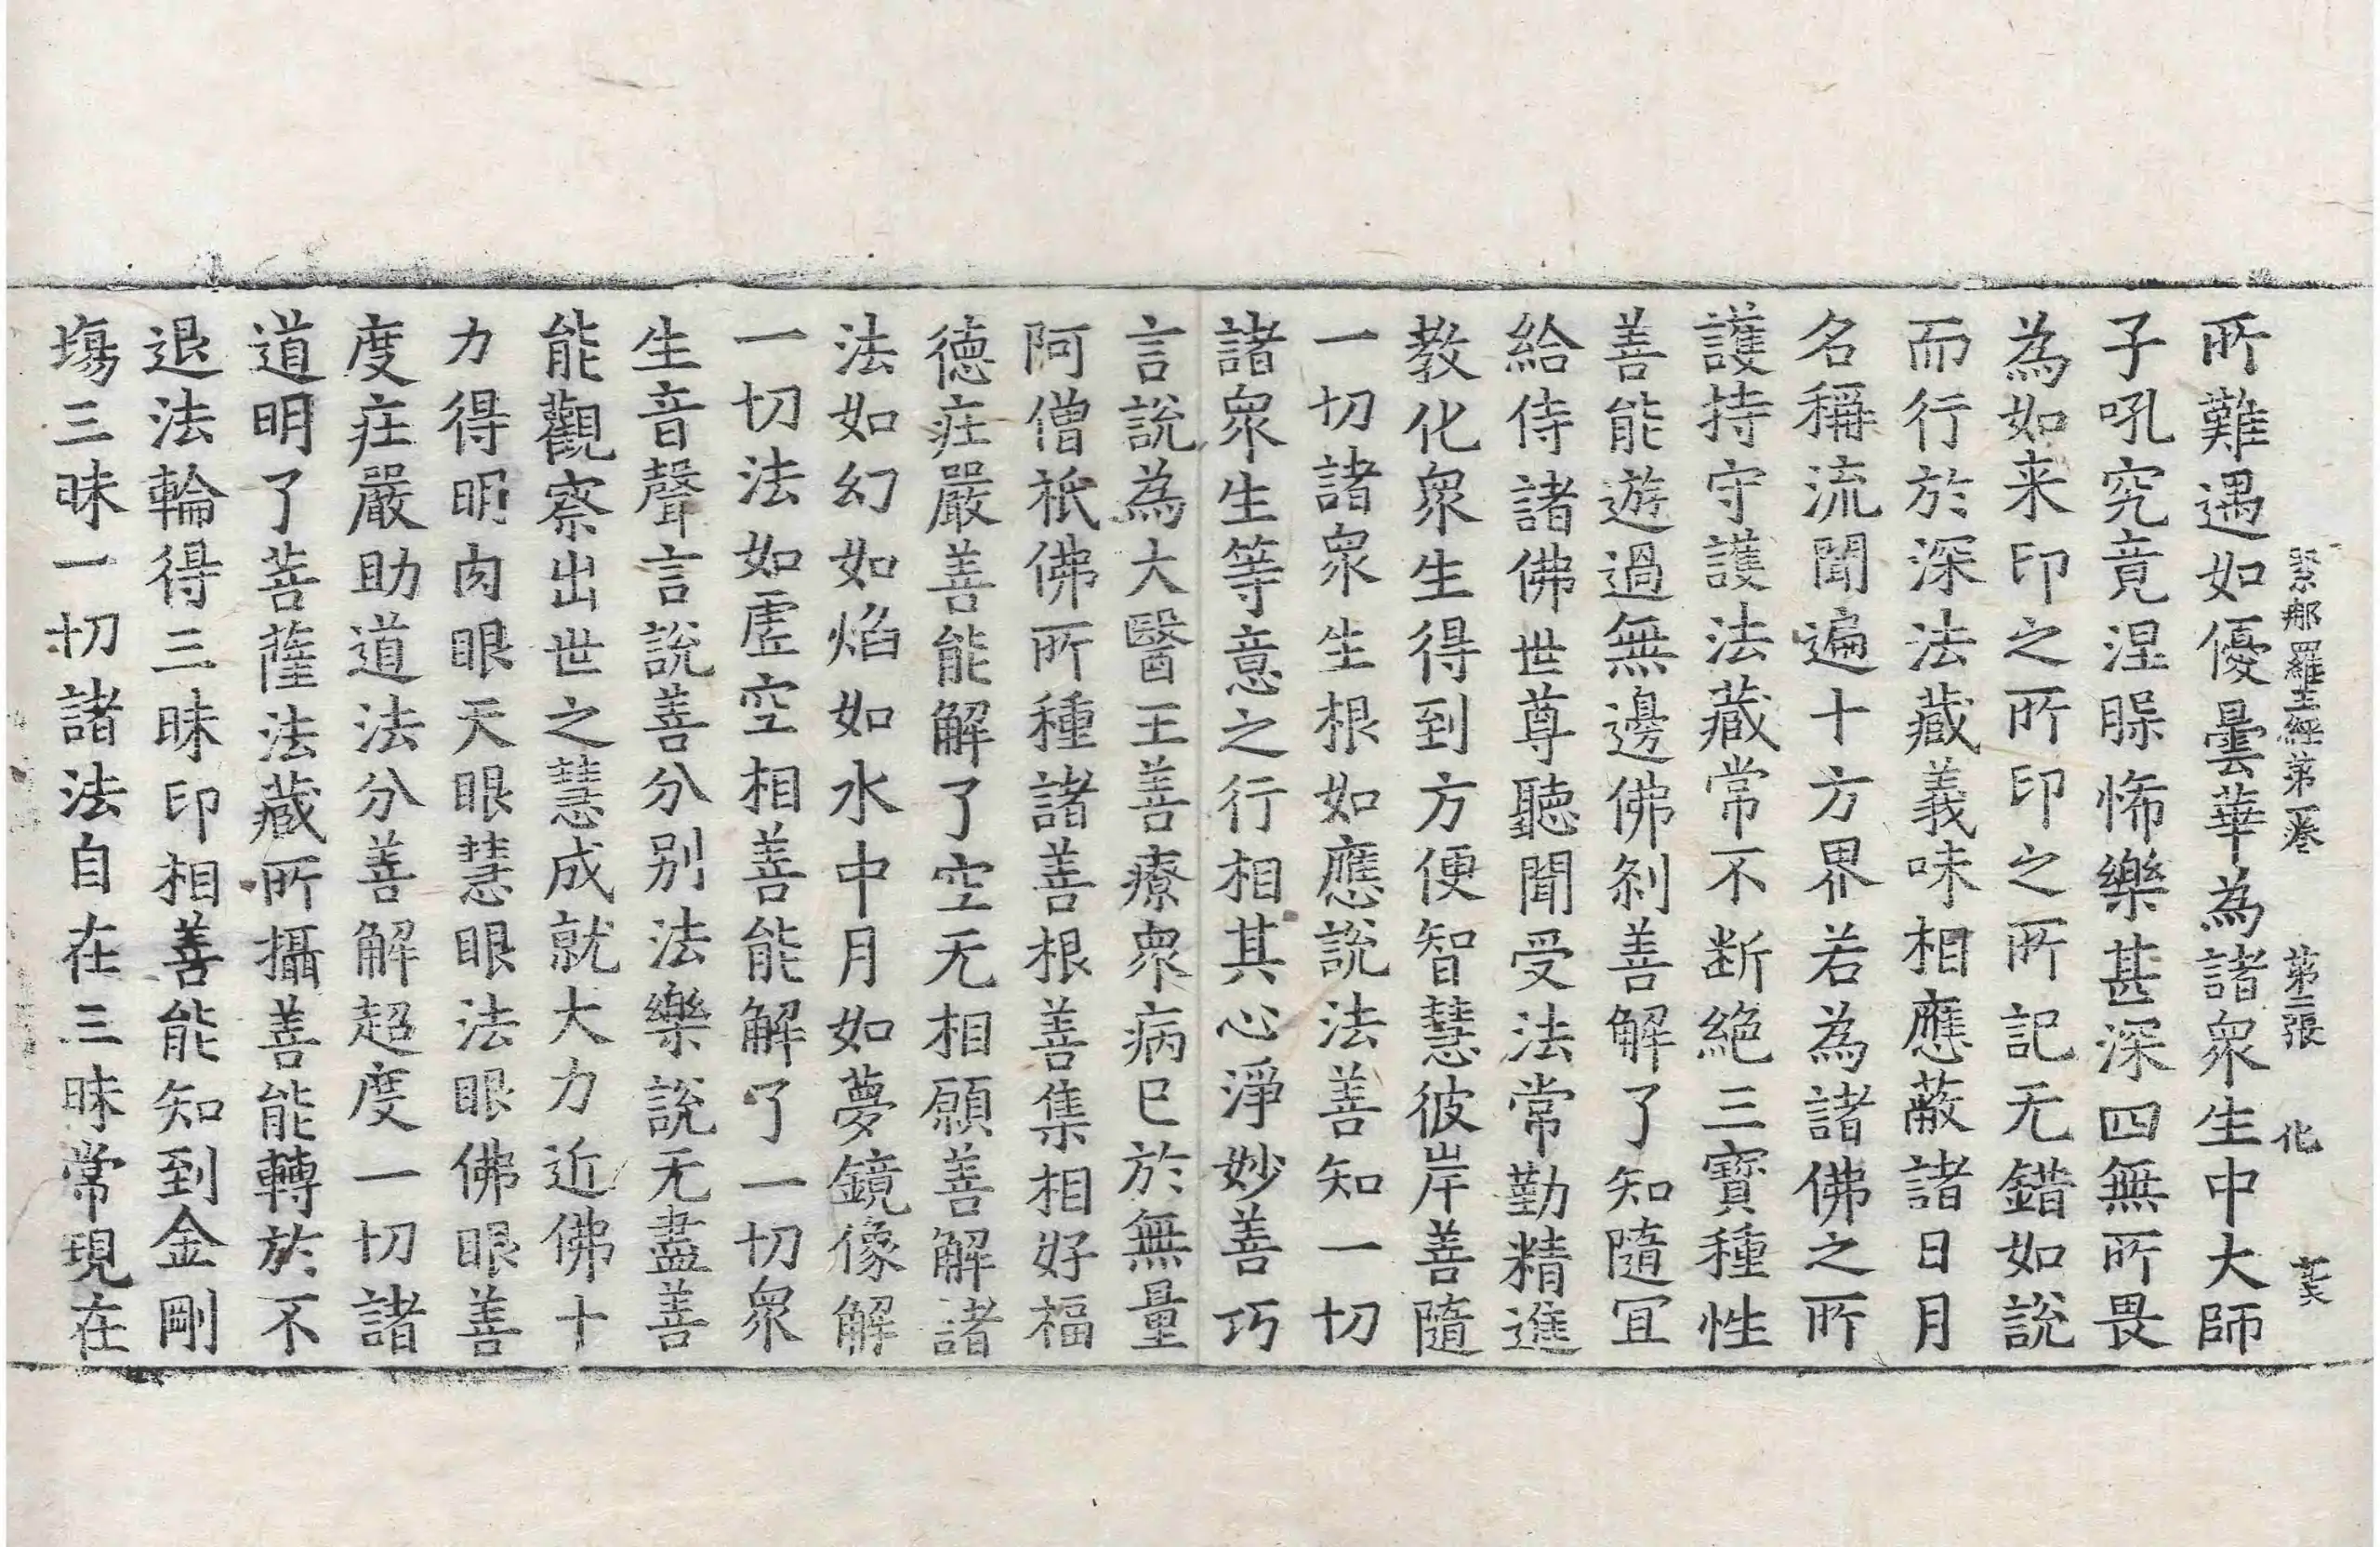 緊那羅王經第一卷　第二張　化
所難遇如優曇華為諸衆生中大師
子吼究竟涅槃怖樂甚深四無所畏
為如来印之所印之所記无錯如說
而行於深法藏義味相應蔽諸日月
名稱流聞遍十方界若為諸佛之所
護持守護法藏常不断絶三寶種性
善能遊過無邊佛刹善解了知隨冝
給侍諸佛世尊聽聞受法常勤精進
教化衆生得到方便智慧彼岸善隨
一切諸衆生根如應說法善知一切
諸衆生等意之行相其心淨妙善巧
言說為大醫王善療衆病已於無量
阿僧祇佛所種諸善根善集相好福
德㽵嚴善能解了空无相願善解諸
法如幻如焰如水中月如夢鏡像解
一切法如虛空相善能解了一切衆
生音聲言說善分别法樂說无盡善
能觀察出世之慧成就大力近佛十
力得明肉眼天眼慧眼法眼佛眼善
度㽵嚴助道法分善解超度一切諸
道明了菩薩法藏所攝善能轉於不
退法輪得三昧印相善能知到金剛
塲三昧一切諸法自在三昧常現在